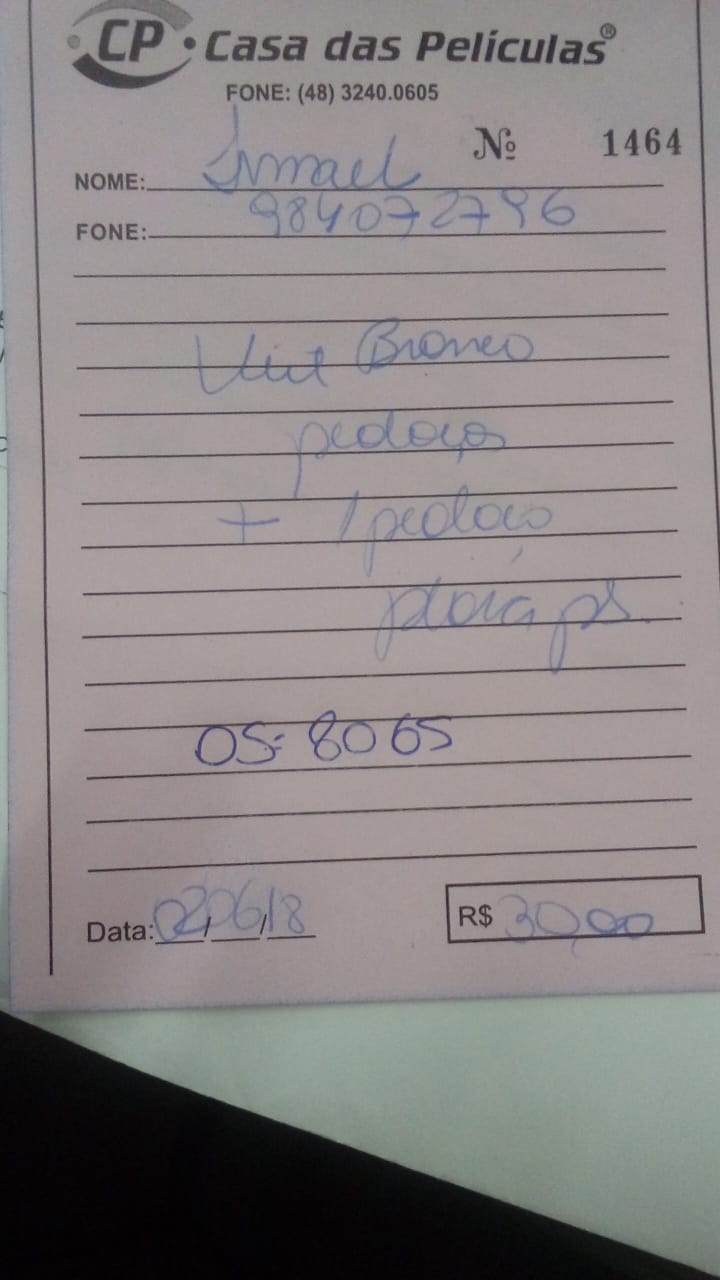 CP • Casa das Películas®
FONE: (48) 3240.0605
Nº 1464
NOME: Ismael
FONE: 984072796
Branco
pedaços
+ 1 pedaço
OS: 8065
Data: 02/06/18
R$ 30,00